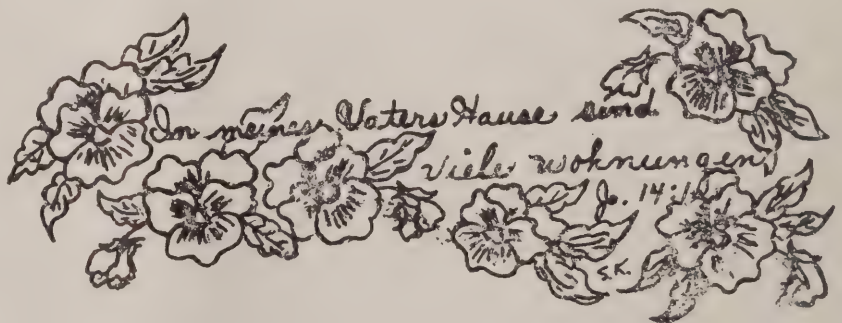 In meines Vaters Hause send
Viele wohnungen,
Jo. 14:1
S.K.